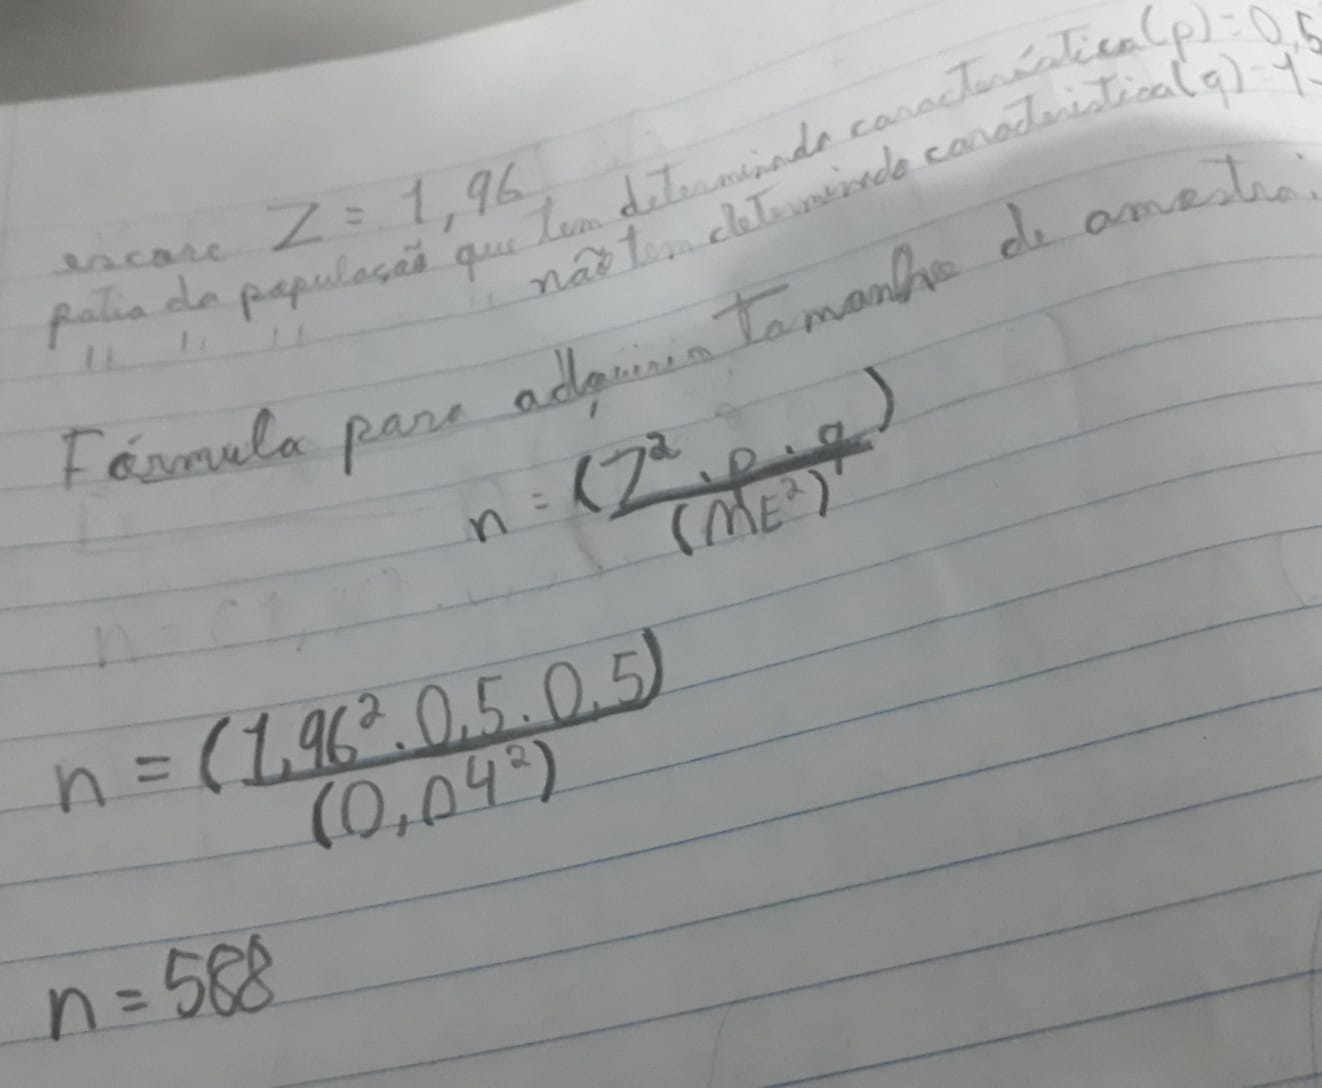 escore Z = 1,96
patia da população que tem determinada característica (p) = 0,5
" " " " não tem determinada caracteristica (q) = 1-
Fórmula para adquirir tamanho de amostra:
n = (Z² . p . q)
(ME²)
n = (1,96² . 0,5 . 0,5)
(0,04²)
n = 588